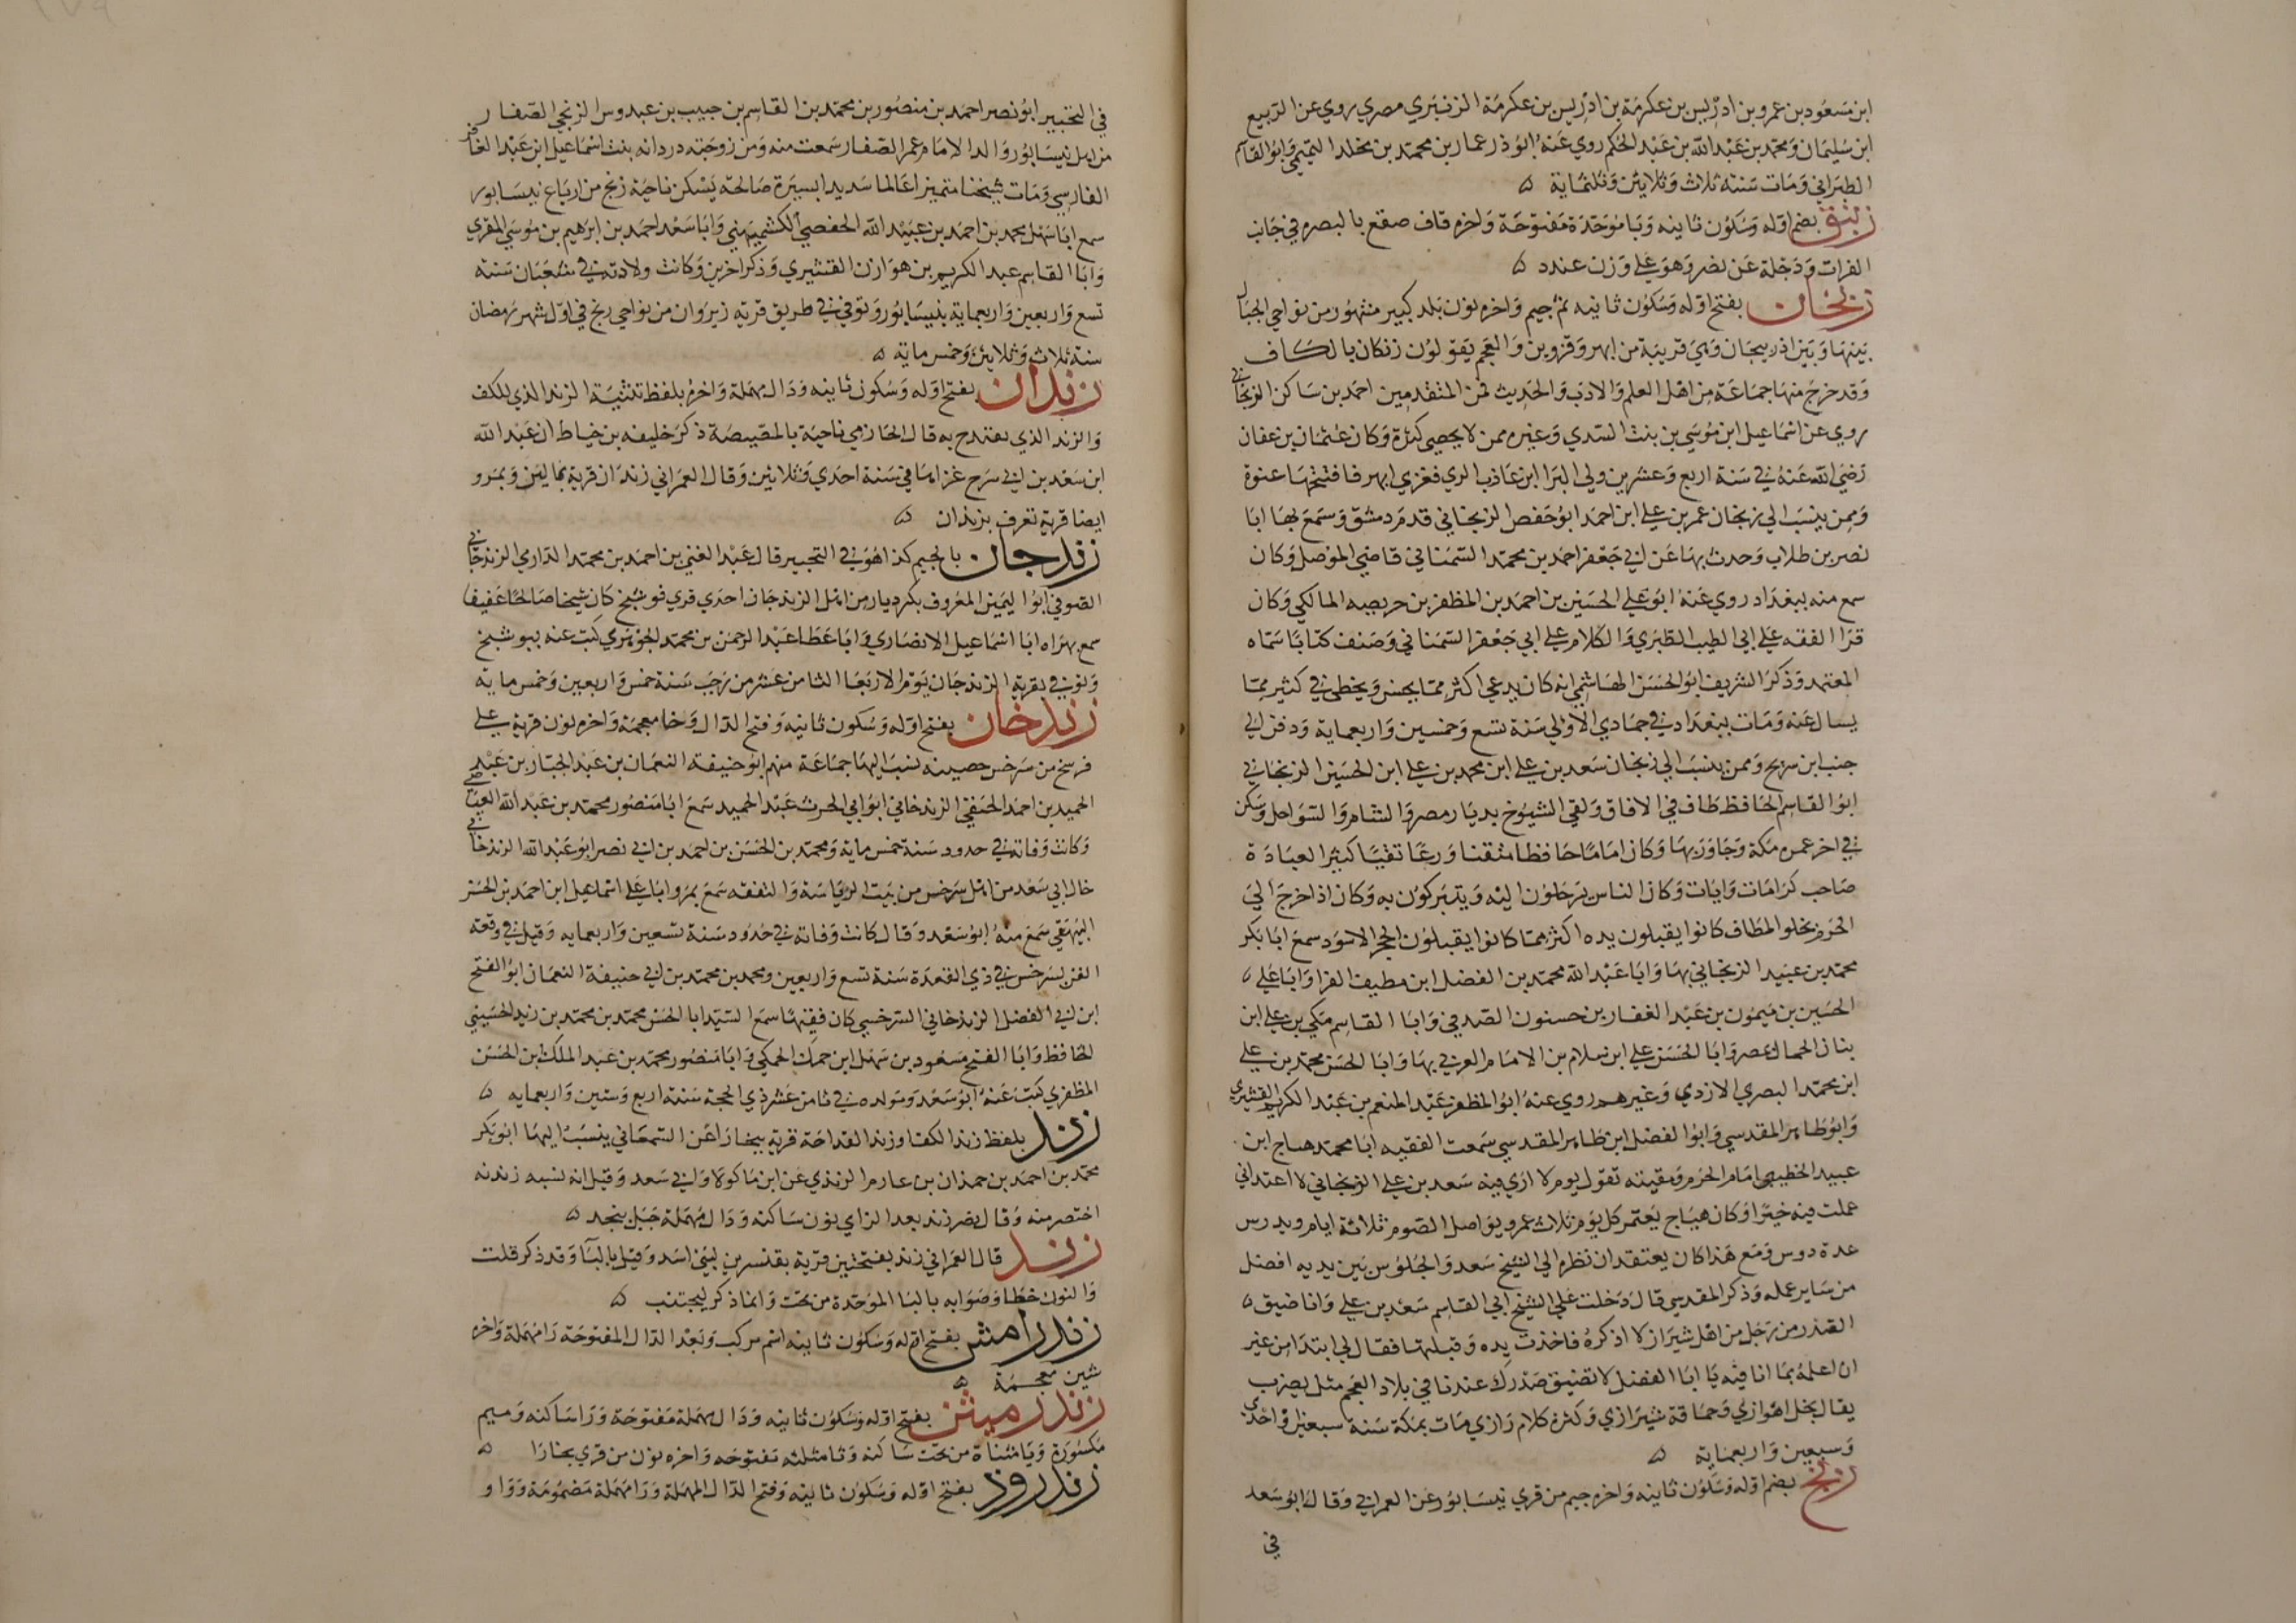 ابن مسعود بن عمرو بن ادريس بن عكرمة بن ادريس بن عكرمة الزنبري مصري روي عن الربيع
ابن سليمان ومحمد بن عبد الله بن عبد الحكم روي عنه ابو ذر عمار بن محمد بن مخلد التميمي وابو القاسم
الطبراني ومات سنة ثلاث وثلاثين وثلثماية ه
زنبق بضم اوله وسكون ثانيه وبا موحدة مفتوحة واخره قاف صقع بالبصره في جانب
الفرات ودجلة عن نصر وهو علي وزن عندد ه
زنجان بفتح اوله وسكون ثانيه ثم جيم واخره نون بلد كبير مشهور من نواحي الجبال
بينها وبين اذربيجان وهي قريبة من ابهر وقزوين والعجم يقولون زنكان بالكاف
وقد خرج منها جماعة من اهل العلم والادب والحديث فمن المتقدمين احمد بن ساكن الزنجاني
روي عن اسماعيل ابن موسي بن بنت السدي وغيره ممن لا يحصي كثرة وكان عثمان بن عفان
رضي الله عنه في سنة اربع وعشرين ولي البرا ابن عاذب الري فغزي ابهر فافتتحها عنوة
وممن ينسب الي زنجان عمر بن علي ابن احمد ابو حفص الزنجاني قدم دمشق وسمع بها ابا
نصر بن طلاب وحدث بها عن ابي جعفر احمد بن محمد السمناني قاضي الموصل وكان
سمع منه ببغداد روي عنه ابو علي الحسين بن احمد بن المظفر بن حريصه المالكي وكان
قرا الفقه علي ابي الطيب الطبري والكلام علي ابي جعفر السمناني وصنف كتابا سماه
المعتمد وذكر الشريف ابو الحسن الهاشمي انه كان يدعي اكثر مما يحسن ويخطي في كثير مما
يسال عنه ومات ببغداد في جمادي الاولي سنة تسع وخمسين واربعماية ودفن الي
جنب ابن سريج وممن ينسب الي زنجان سعد بن علي ابن محمد بن علي ابن الحسين الزنجاني
ابو القاسم الحافظ طاف في الافاق ولقي الشيوخ بديار مصر والشام والسواحل وسكن
في اخر عمره مكة وجاور بها وكان اماما حافظا متقنا ورعا تقيا كثير العبادة
صاحب كرامات وايات وكان الناس يرحلون اليه ويتبركون به وكان اذا خرج الي
الحرم يخلو المطاف كانوا يقبلون يده اكثر مما كانوا يقبلون الحجر الاسود سمع ابا بكر
محمد بن عبيد الزنجاني بها وابا عبد الله محمد بن الفضل ابن مطيف الفرا وابا علي ه
الحسين بن ميمون بن عبد الغفار بن حسنون الصدفي وابا القاسم مكي بن علي ابن
بنان الحمال بمصر وابا الحسن علي ابن سلام بن الامام الغربي بها وابا الحسن محمد بن علي
ابن محمد البصري الازدي وغيرهم روي عنه ابو المظفر عبد المنعم بن عبد الكريم القشيري
وابو طاهر المقدسي وابو الفضل ابن طاهر المقدسي سمعت الفقيه ابا محمد هياج ابن
عبيد الخطيبي امام الحرم ومفتيه تقول يوم لا اري فيه سعد بن علي الزنجاني لا اعتد اني
عملت فيه خيرا وكان هياج يعتمر كل يوم ثلاث عمر ويواصل الصوم ثلاثة ايام ويدرس
عدة دوس ومع هذا كان يعتقد ان نظره الي الشيخ سعد والجلوس بين يديه افضل
من ساير عمله وذكر المقدسي قال دخلت علي الشيخ ابي القاسم سعد بن علي وانا ضيق ه
الصدر من رجل من اهل شيراز لا اذكره فاخذت يده وقبلتها فقال لي ابتدا من غير
ان اعلمه بما انا فيه يا ابا الفضل لا تضيق صدرك عندنا في بلاد العجم مثل يضرب
يقال بخل اهوازي وحماقة شيرازي وكثرة كلام رازي ومات بمكة سنة سبعين او احدي
وسبعين واربعماية ه
زنج بضم اوله وسكون ثانيه واخره جيم من قري نيسابور عن العمراني وقال ابو سعد
في
في التحبير ابو نصر احمد بن منصور بن محمد بن القاسم بن حبيب بن عبدوس الزنجي الصفار
من اهل نيسابور والد الامام عمر الصفار سمعت منه ومن زوجته دردانه بنت اسماعيل ابن عبد الغافر
الفارسي ومات شيخنا متميزا عالما سديد السيرة صالحة يسكن ناحية زنج من ارباع نيسابور
سمع ابا سهل محمد بن احمد بن عبيد الله الحفصي الكشميهني وابا سعد احمد بن ابرهيم بن موسي المقري
وابا القاسم عبد الكريم بن هوازن القشيري وذكر اخرين وكانت ولادته في شعبان سنة
تسع واربعين واربعماية بنيسابور وتوفي في طريق قرية زيروان من نواحي زنج في اول شهر رمضان
سنة ثلاث وثلاثين وخمس ماية ه
زندان بفتح اوله وسكون ثانيه ودال مهملة واخره بلفظ تثنية الزند الذي للكف
والزند الذي يقتدح به قال الحازمي ناحية بالمصيصة ذكر خليفه بن خياط ان عبد الله
ابن سعد بن ابي سرح غزاها في سنة احدي وثلاثين وقال العمراني زندان قرية بمالين وبمرو
ايضا قرية تعرف بزندان ه
زندجان بالجيم كذا هو في التحبير قال عبد الغني بن احمد بن محمد الدارمي الزندجاني
الصوفي ابو اليمين المعروف بكرديار من اهل الزندجان احدي قري فوشنج كان شيخا صالحا عفيفا
سمع بهراه ابا اسماعيل الانصاري وابا عطا عبد الرحمن بن محمد الجوهري كتب عنه ببوشنج
وتوفي بقرية الزندجان يوم الاربعا الثامن عشر من رجب سنة خمس واربعين وخمس ماية
زندخان بفتح اوله وسكون ثانيه وفتح الدال وخا معجمة واخره نون قرية علي
فرسخ من سرخس حصينه نسب اليها جماعة منهم ابو حنيفة النعمان بن عبد الجبار بن عبد
الحميد بن احمد الحنفي الزندخاني ابو ابي الحرث عبد الحميد سمع ابا منصور محمد بن عبد الله العياضي
وكانت وفاته في حدود سنة خمس ماية ومحمد بن الحسن بن احمد بن ابي نصر ابو عبد الله الزندخاني
خال ابي سعد من اهل سرخس من بيت الرياسة والتفقه سمع بمرو ابا علي اسماعيل ابن احمد بن الحسن
البيهقي سمع منه ابو سعد وقال كانت وفاته في حدود سنة تسعين واربعمايه وقيل في وقعة
الغز بسرخس في ذي القعدة سنة تسع واربعين ومحمد بن محمد بن ابي حنيفة النعمان ابو الفتح
ابن ابي الفضل الزندخاني السرخسي كان فقيها سمع السيد ابا الحسن محمد بن محمد بن زيد الحسيني
الحافظ وابا الفتح مسعود بن سهل ابن حمك الحمكي وابا منصور محمد بن عبد الملك ابن الحسن
المظفري كتب عنه ابو سعد ومولده في ثامن عشر ذي الحجة سنة اربع وستين واربعمايه ه
زند بلفظ زند الكف او زند القداحة قرية ببخارا عن السمعاني ينسب اليها ابو بكر
محمد بن احمد بن حمدان بن عارم الزندي عن ابن ماكولا وابي سعد وقيل انه نسبه زندنه
اختصر منه وقال نصر زند بعد الزاي نون ساكنه ودال مهملة جبل بنجد ه
زند قال العمراني زند بفتحتين قرية بقنسرين لبني اسد وقيل بالبا وقد ذكر قلت
والنون خطا وصوابه بالبا الموحدة من تحت وانما ذكر ليجتنب ه
زندرامش بفتح اوله وسكون ثانيه اسم مركب وبعد الدال المفتوحة را مهملة واخره
شين معجمة ه
زندرميثن بفتح اوله وسكون ثانيه ودال مهملة مفتوحة ورا ساكنه وميم
مكسورة ويا مثناة من تحت ساكنه وثا مثلثه مفتوحه واخره نون من قري بخارا ه
زندرود بفتح اوله وسكون ثانيه وفتح الدال المهملة ورا مهملة مضمومة وواو